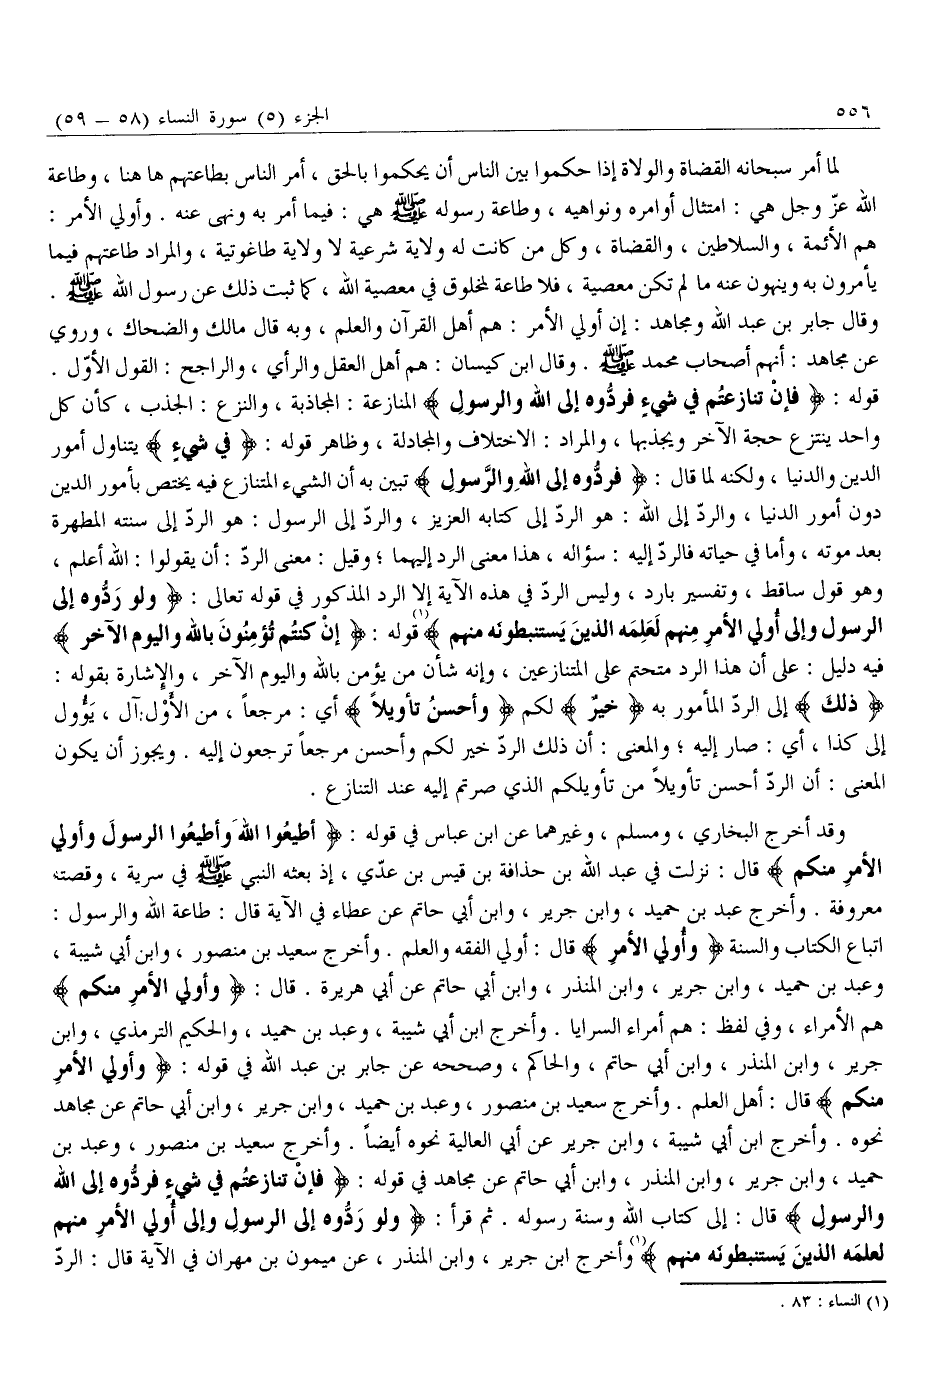 ٥٥٦ الجزء (٥) سورة النساء (٥٨ – ٥٩)
لما أمر سبحانه القضاة والولاة إذا حكموا بين الناس أن يحكموا بالحق ، أمر الناس بطاعتهم ها هنا ، وطاعة
الله عزّ وجل هي : امتثال أوامره ونواهيه ، وطاعة رسوله ﷺ هي : فيما أمر به ونهى عنه . وأولي الأمر :
هم الأئمة ، والسلاطين ، والقضاة ، وكل من كانت له ولاية شرعية لا ولاية طاغوتية ، والمراد طاعتهم فيما
يأمرون به وينهون عنه ما لم تكن معصية ، فلا طاعة لمخلوق في معصية الله ، كما ثبت ذلك عن رسول الله ﷺ .
وقال جابر بن عبد الله ومجاهد : إن أولي الأمر : هم أهل القرآن والعلم ، وبه قال مالك والضحاك ، وروي
عن مجاهد : أنهم أصحاب محمد ﷺ . وقال ابن كيسان : هم أهل العقل والرأي ، والراجح : القول الأوّل .
قوله : ﴿ فإنْ تنازعتُم في شيءٍ فردُّوه إلى الله والرسول ﴾ المنازعة : المجاذبة ، والنزع : الجذب ، كأن كل
واحد ينتزع حجة الآخر ويجذبها ، والمراد : الاختلاف والمجادلة ، وظاهر قوله : ﴿ في شيءٍ ﴾ يتناول أمور
الدين والدنيا ، ولكنه لما قال : ﴿ فردُّوه إلى اللهِ والرَّسولِ ﴾ تبين به أن الشيء المتنازع فيه يختص بأمور الدين
دون أمور الدنيا ، والردّ إلى الله : هو الردّ إلى كتابه العزيز ، والردّ إلى الرسول : هو الردّ إلى سنته المطهرة
بعد موته ، وأما في حياته فالردّ إليه : سؤاله ، هذا معنى الرد إليهما ؛ وقيل : معنى الردّ : أن يقولوا : الله أعلم ،
وهو قول ساقط ، وتفسير بارد ، وليس الردّ في هذه الآية إلا الرد المذكور في قوله تعالى : ﴿ ولو رَدُّوه إلى
الرسول وإلى أُولي الأمرِ مِنهم لَعَلِمَه الذينَ يَستنبطونَه منهم ﴾(١) قوله : ﴿ إنْ كنتُم تُؤمِنُونَ باللهِ واليومِ الآخر ﴾
فيه دليل : على أن هذا الرد متحتم على المتنازعين ، وإنه شأن من يؤمن بالله واليوم الآخر ، والإشارة بقوله :
﴿ ذلكَ ﴾ إلى الردّ المأمور به ﴿ خيرٌ ﴾ لكم ﴿ وأحسنُ تأويلاً ﴾ أي : مرجعاً ، من الأَوْل:آل ، يَؤُول
إلى كذا ، أي : صار إليه ؛ والمعنى : أن ذلك الردّ خير لكم وأحسن مرجعاً ترجعون إليه . ويجوز أن يكون
المعنى : أن الردّ أحسن تأويلاً من تأويلكم الذي صرتم إليه عند التنازع .
وقد أخرج البخاري ، ومسلم ، وغيرهما عن ابن عباس في قوله : ﴿ أطيعُوا اللهَ وأطيعُوا الرسولَ وأولي
الأمرِ منكم ﴾ قال : نزلت في عبد الله بن حذافة بن قيس بن عدّي ، إذ بعثه النبي ﷺ في سرية ، وقصته
معروفة . وأخرج عبد بن حميد ، وابن جرير ، وابن أبي حاتم عن عطاء في الآية قال : طاعة الله والرسول :
اتباع الكتاب والسنة ﴿ وأُولي الأمرِ ﴾ قال : أولي الفقه والعلم . وأخرج سعيد بن منصور ، وابن أبي شيبة ،
وعبد بن حميد ، وابن جرير ، وابن المنذر ، وابن أبي حاتم عن أبي هريرة . قال : ﴿ وأولي الأمرِ منكم ﴾
هم الأمراء ، وفي لفظ : هم أمراء السرايا . وأخرج ابن أبي شيبة ، وعبد بن حميد ، والحكيم الترمذي ، وابن
جرير ، وابن المنذر ، وابن أبي حاتم ، والحاكم ، وصححه عن جابر بن عبد الله في قوله : ﴿ وأولي الأمرِ
منكم ﴾ قال : أهل العلم . وأخرج سعيد بن منصور ، وعبد بن حميد ، وابن جرير ، وابن أبي حاتم عن مجاهد
نحوه . وأخرج ابن أبي شيبة ، وابن جرير عن أبي العالية نحوه أيضاً . وأخرج سعيد بن منصور ، وعبد بن
حميد ، وابن جرير ، وابن المنذر ، وابن أبي حاتم عن مجاهد في قوله : ﴿ فإنْ تنازعتُم في شيءٍ فردُّوه إلى الله
والرسولِ ﴾ قال : إلى كتاب الله وسنة رسوله . ثم قرأ : ﴿ ولو رَدُّوه إلى الرسولِ وإلى أُولي الأمرِ منهم
لعلمَه الذينَ يَستنبطونَه منهم ﴾(١) وأخرج ابن جرير ، وابن المنذر ، عن ميمون بن مهران في الآية قال : الردّ
(١) النساء : ٨٣ .